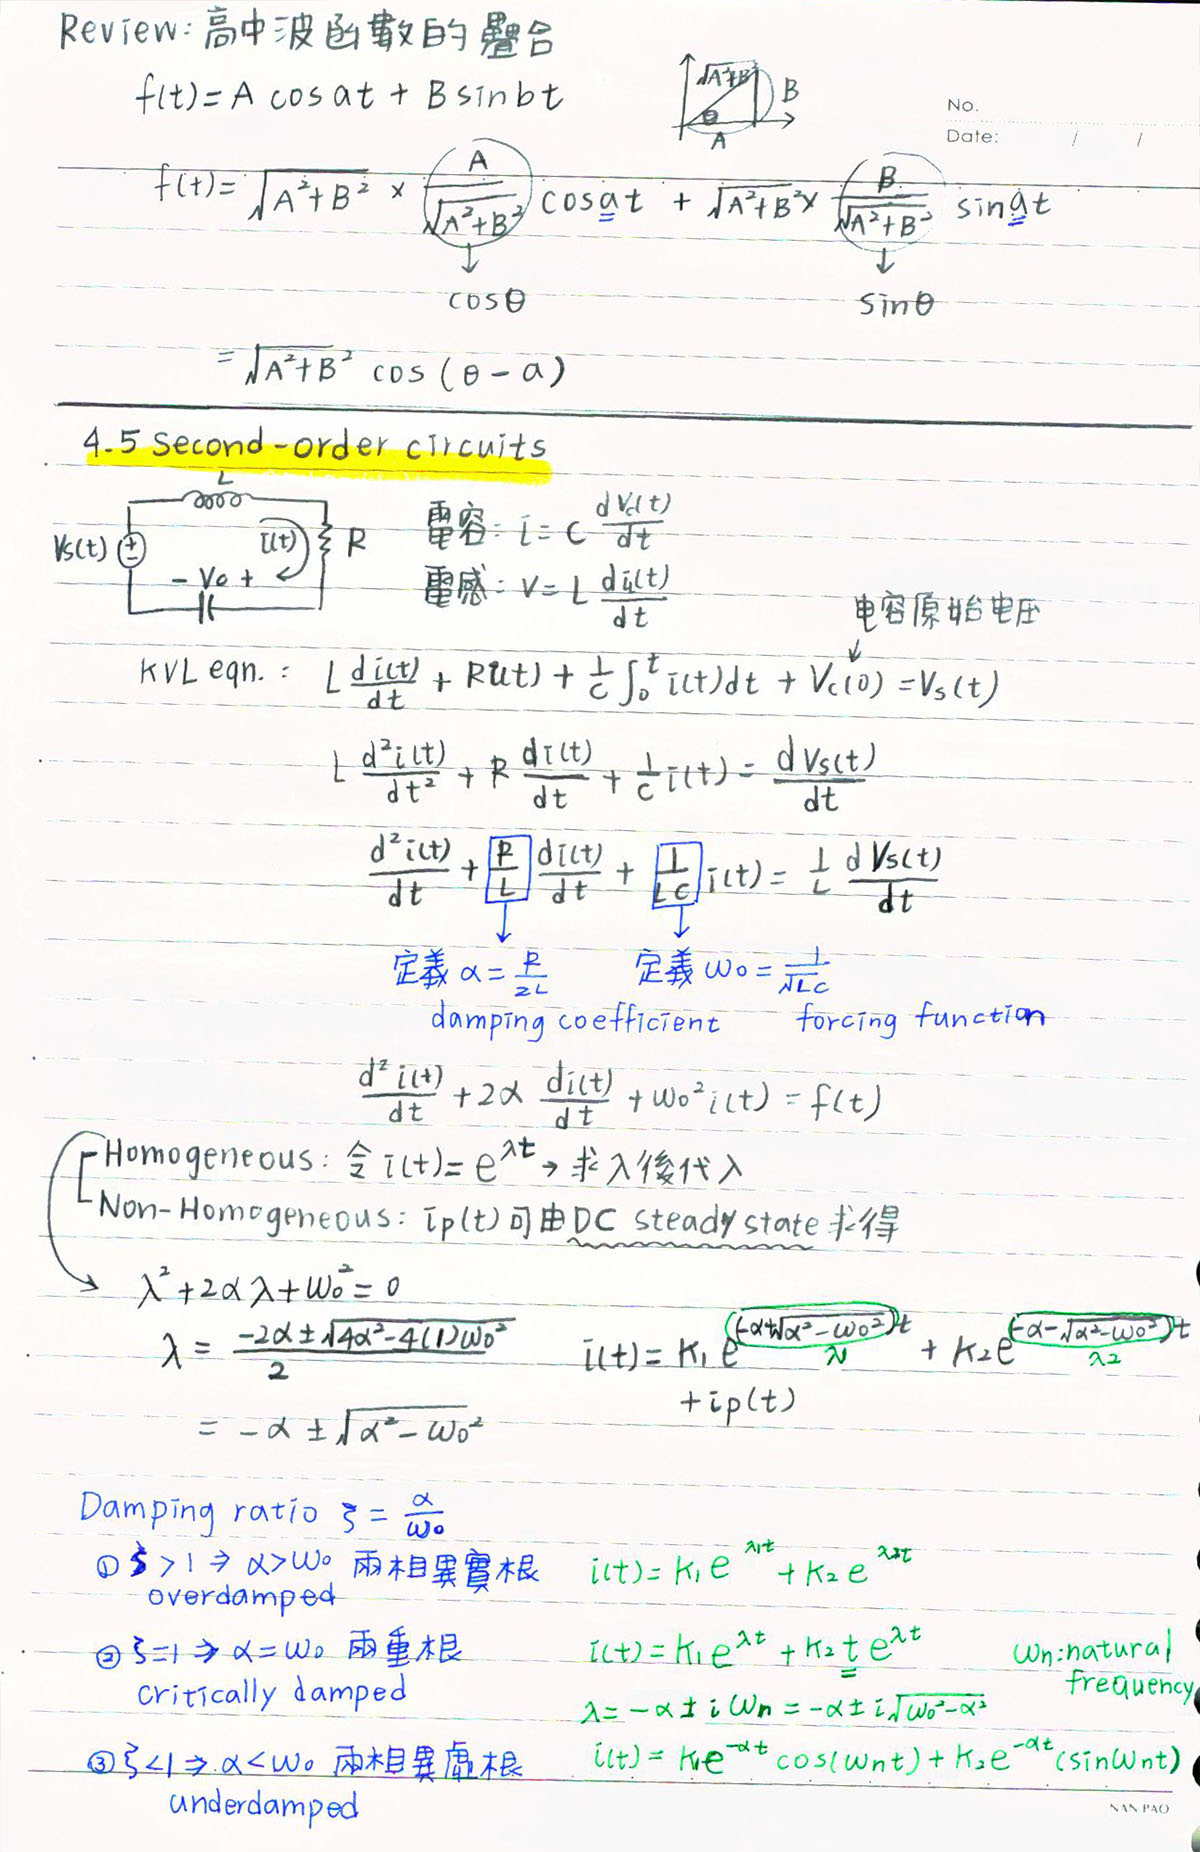 Review: 高中波函數的疊合
f(t) = A cos at + B sin bt
√A²+B²
B
θ
A
No.
Date: / /
f(t) = √A²+B² × A/√A²+B² cos at + √A²+B² × B/√A²+B² sin at
↓ ↓
cosθ sinθ
= √A²+B² cos (θ - a)
4.5 Second-order circuits
L
Vs(t) + - i(t) R
- Vc +
電容: i = C dVc(t)/dt
電感: V = L diL(t)/dt
电容原始电压
↓
KVL eqn. : L di(t)/dt + Ri(t) + 1/C ∫₀ᵗ i(t)dt + Vc(0) = Vs(t)
L d²i(t)/dt² + R di(t)/dt + 1/C i(t) = dVs(t)/dt
d²i(t)/dt + R/L di(t)/dt + 1/LC i(t) = 1/L dVs(t)/dt
↓ ↓
定義 α = R/2L 定義 ω₀ = 1/√LC
damping coefficient forcing function
d²i(t)/dt + 2α di(t)/dt + ω₀² i(t) = f(t)
Homogeneous: 令 i(t) = e^λt → 求入後代入
Non-Homogeneous: ip(t) 可由DC steady state 求得
λ² + 2αλ + ω₀² = 0
λ = -2α ± √4α²-4(1)ω₀² / 2
i(t) = K₁e^(-α+√α²-ω₀²)t + K₂e^(-α-√α²-ω₀²)t
λ1 λ2
+ ip(t)
= -α ± √α²-ω₀²
Damping ratio ξ = α/ω₀
① ξ > 1 ⇒ α > ω₀ 兩相異實根 i(t) = K₁e^λ₁t + K₂e^λ₂t
overdamped
② ξ = 1 ⇒ α = ω₀ 兩重根 i(t) = K₁e^λt + K₂te^λt
ωn: natural frequency
critically damped
λ = -α ± i ωn = -α ± i√ω₀²-α²
③ ξ < 1 ⇒ α < ω₀ 兩相異虛根 i(t) = K₁e^-αt cos(ωnt) + K₂e^-αt (sinωnt)
underdamped
NAN PAO